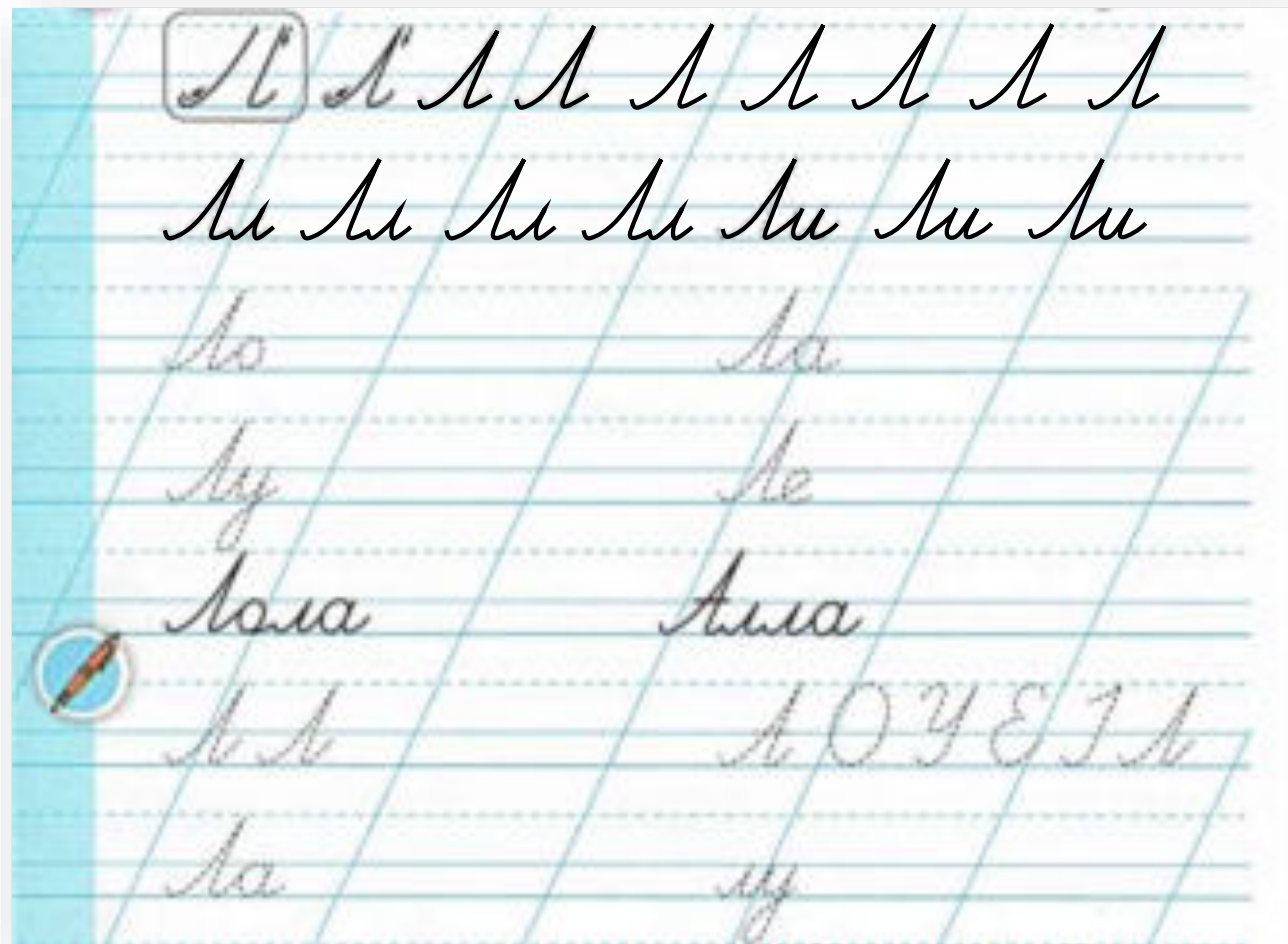 Л Л Л Л Л Л Л Л Л
Лл Лл Лл Лл Ли Ли Ли
Ло Ла
Лу Ле
Лола Алла
Л Л Л О У Е І Л
Ла лу